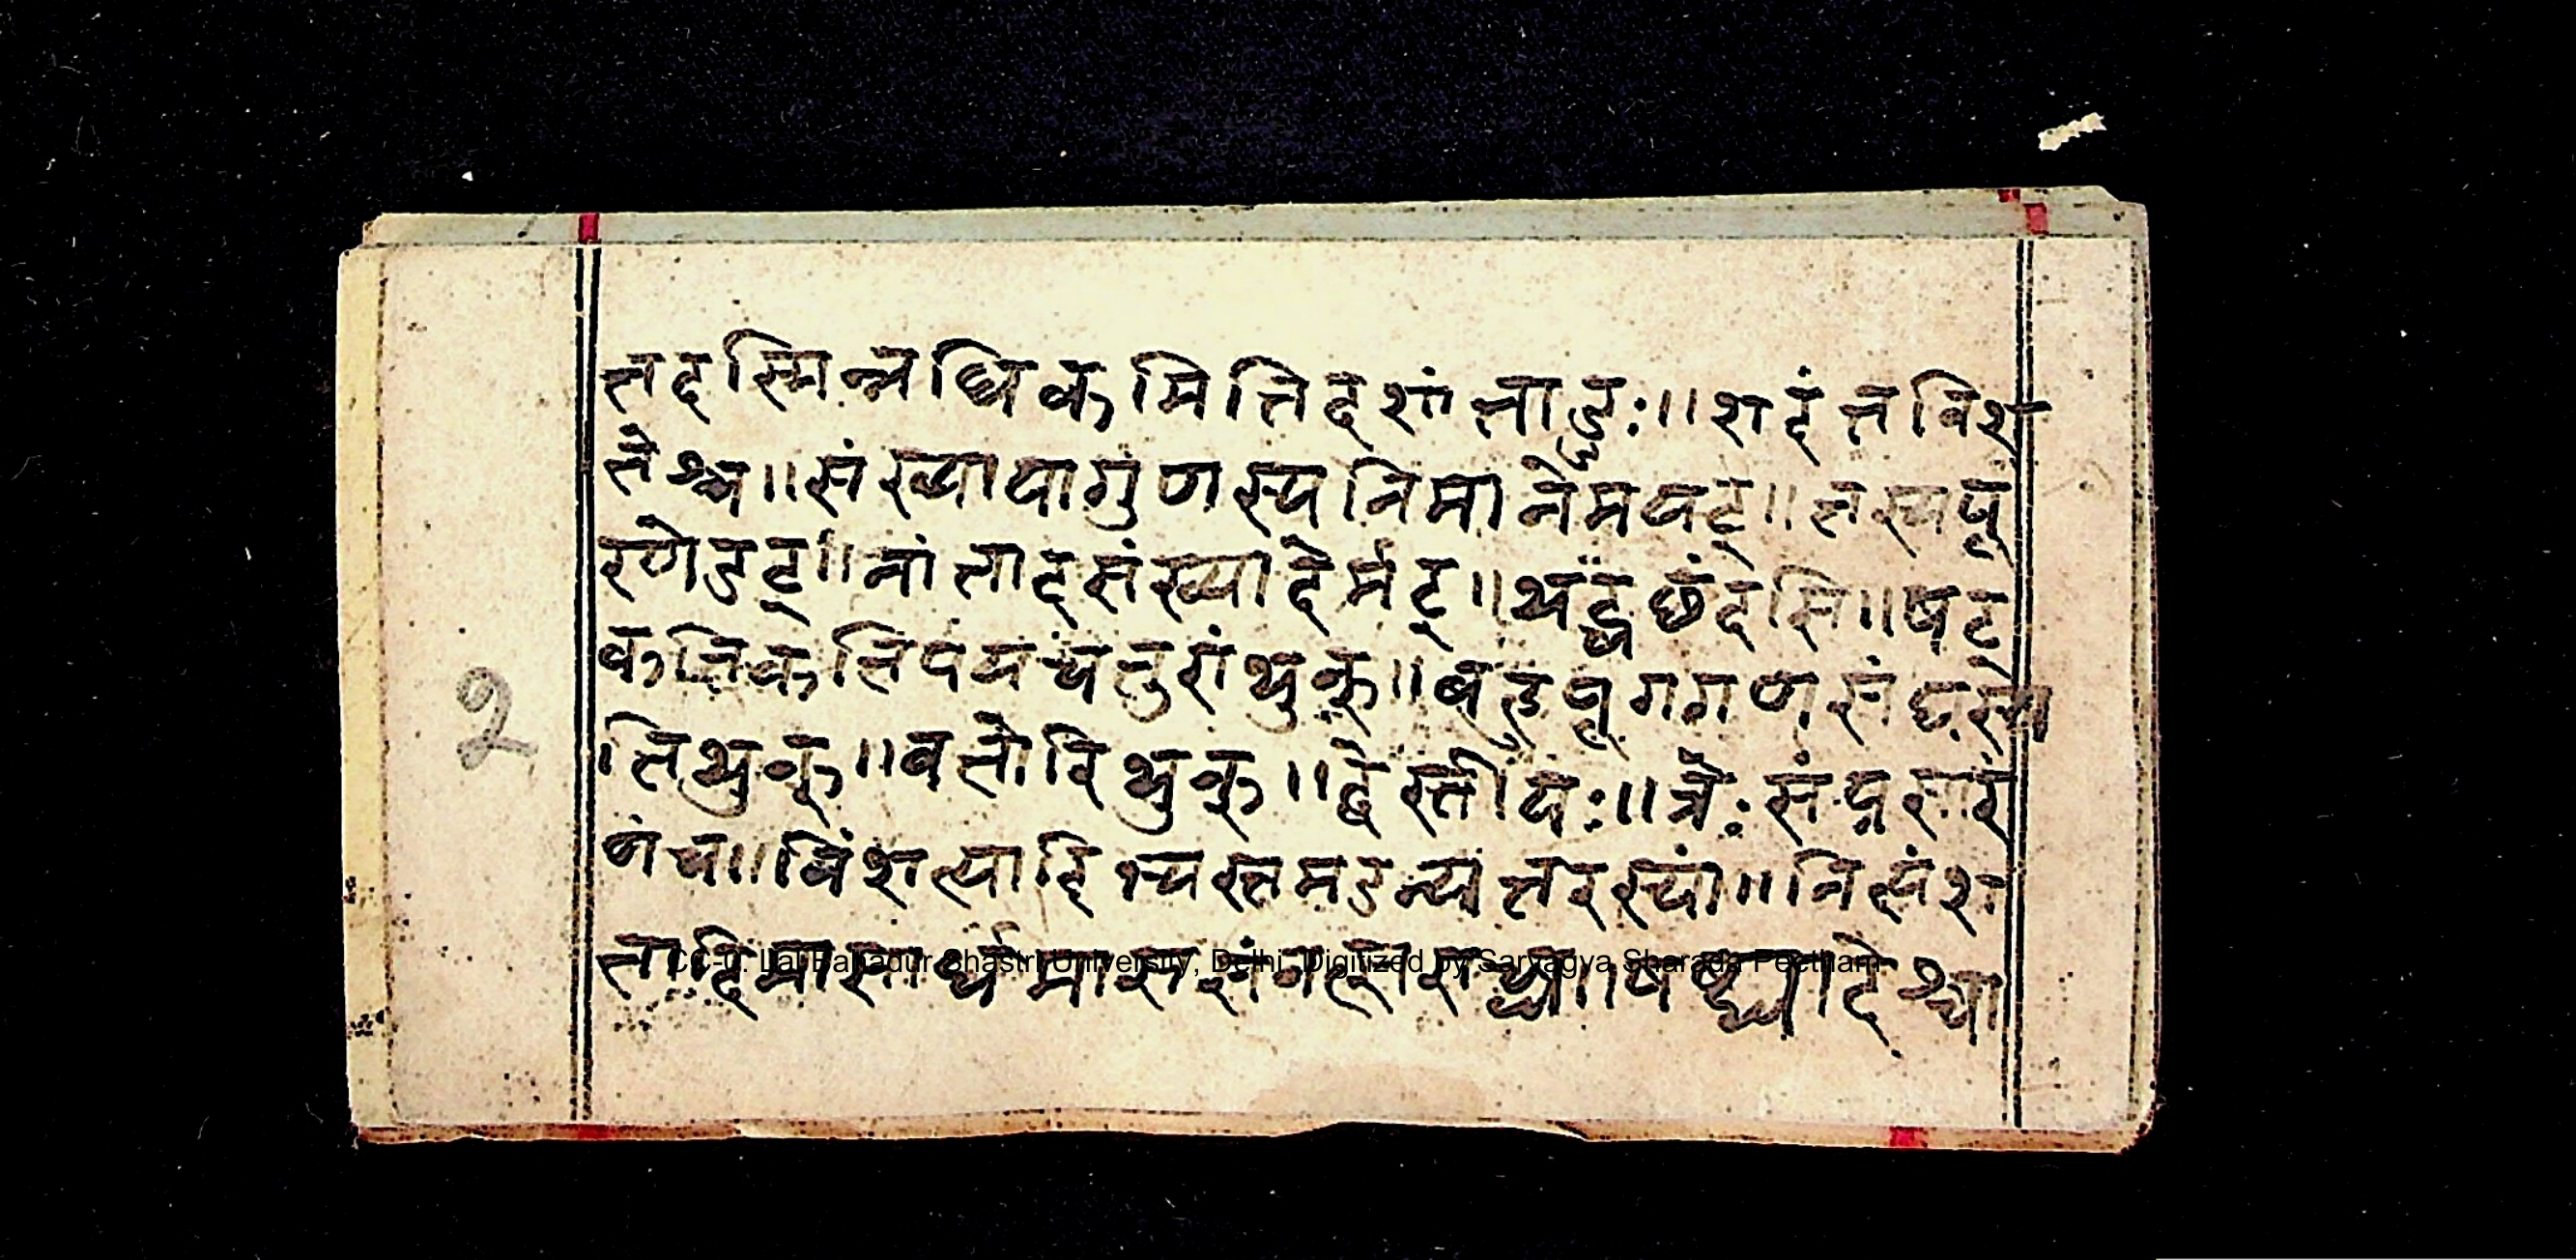 तदस्मिन्नधिकमितिदशांताड्डः॥शदंतविंश
तेश्च॥संख्यायागुणस्यनिमानेमयट्॥तस्यपू
रणेडट्॥नांतादसंख्यादेर्मट्॥थट्चछंदसि॥षट्
कतिकतिपयचतुरांथुक्॥बहुपूगगणसंघस्य
तिथुक्॥वतोरिथुक्॥द्वेस्तीयः॥त्रेः संप्रसार
णंच॥विंशत्यादिभ्यस्तमडन्यतरस्यां॥नित्यंश
तादिमासार्धमाससंवत्सराच्च॥षष्ट्यादेश्चा
2
CC-0. Lal Bahadur Shastri University, Delhi. Digitized by Sarvagya Sharada Peetham